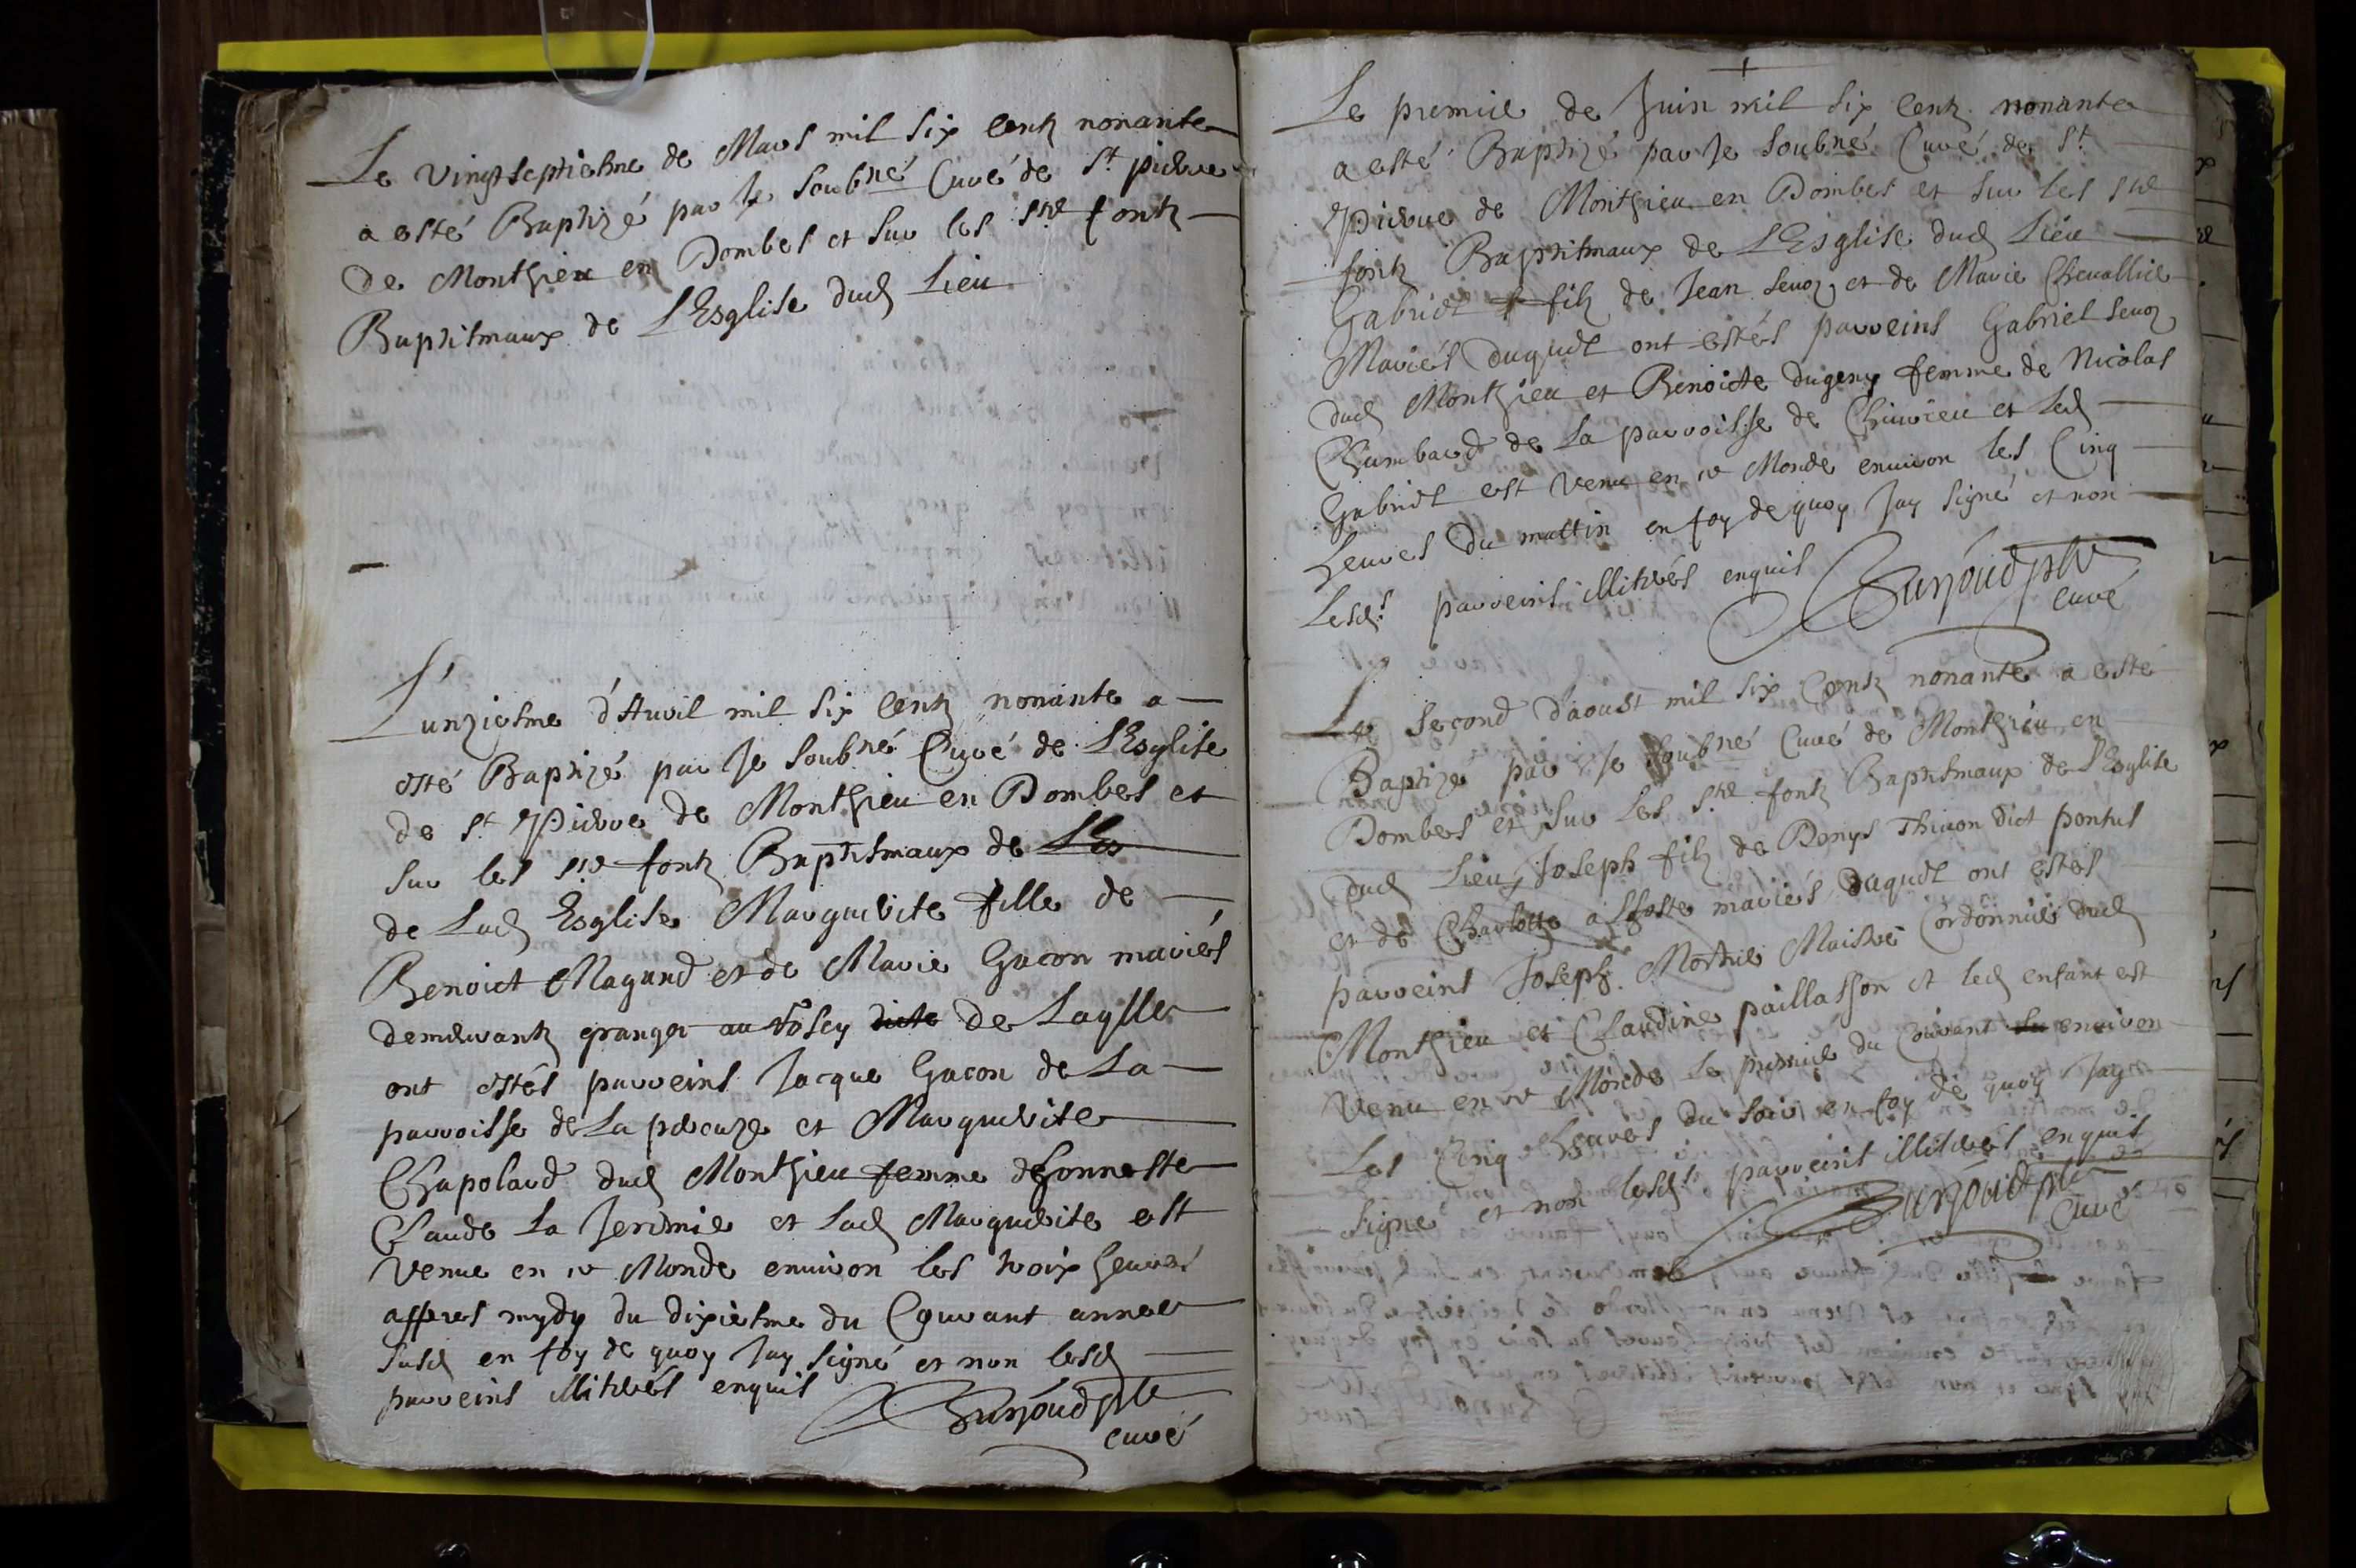 Le vingtseptiesme de Mars mil six centz nonante
a esté Baptizé par Je soubné Curé de St pierre
de Monthieu en Dombes et sur les sts fontz
Baptismaux de L'Esglise dud Lieu
L'unziesme d'Avril mil six centz nonante a
esté Baptizé par Je soubné Curé de L'Esglise
de St Pierre de Monthieu en Dombes et
sur les sts fontz Baptismaux de
de Lad Esglise Marguerite fille de
Benoict Magand et de Marie Gacon mariés
demeurantz granger au de Laylle
ont estés parreins Jacque Gacon de La
parroisse de La pereuze et Marguerite
Chapolard dud Monthieu femme d'honneste
Claude La Jeremie et Lad Marguerite est
venue en ce Monde environ les troix heures
apperes mydy du dixiesme du Courant annee
susd en foy de quoy Jay signé et non lesd
parreins illiterés enquis
curé
Le premier de Juin mil six centz nonante
a esté Baptizé par Je soubné Curé de St
Pierre de Monthieu en Dombes et sur les sts
fontz Baptismaux de L'Esglise dud Lieu
Gabriel filz de Jean Sevoz et de Marie Chevallier
Mariés duquel ont estés parreins Gabriel Sevoz
dud Monthieu et Benoicte dugeny femme de Nicolas
Chambard de La parroisse de Civrieu et Led
Gabriel est venu en ce Monde environ les Cinq
heures du mattin en foy de quoy Jay signé et non
Lesds parreins illiterés enquis
curé
Le second d'aoust mil six Centz nonante a esté
Baptizé par Je soubné Curé de Monthieu en
Dombes et sur Les sts fontz Baptismaux de L'Esglise
dud Lieu Joseph filz de Denys Thivon dict pontus
et de Charlotte mariés duquel ont estés
parreins Joseph Mortier Maistre Cordonnier dud
Monthieu et Claudine paillasson et led enfant est
venu en ce Monde Le premier du Courant environ
Les Cinq heures du soir en foy de quoy Jay
signé et non lesds parreins illiterés enquis
curé